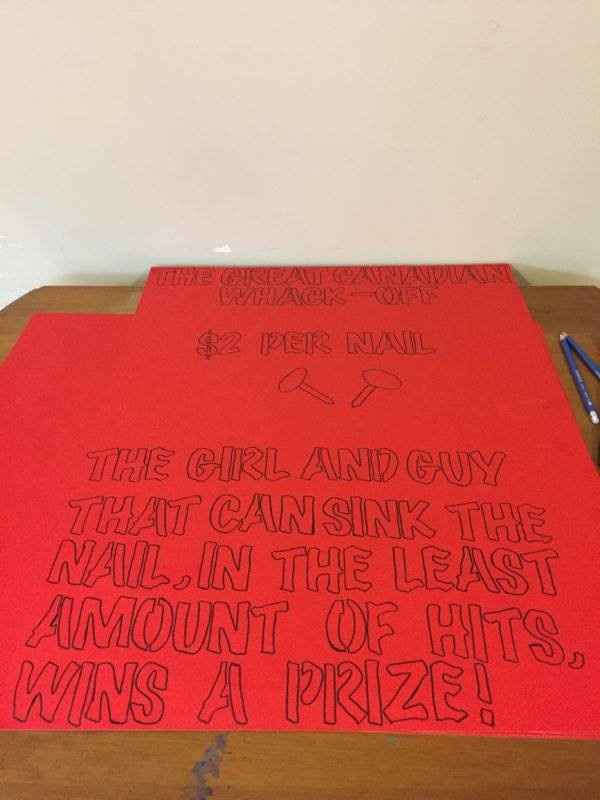 THE GREAT CANADIAN
WHACK-OFF
$2 PER NAIL
THE GIRL AND GUY
THAT CAN SINK THE
NAIL, IN THE LEAST
AMOUNT OF HITS,
WINS A PRIZE!